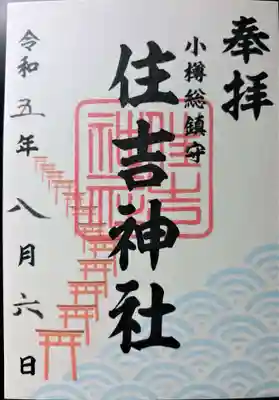 奉拝
小樽総鎮守
住吉神社
住吉神社
令和五年八月六日